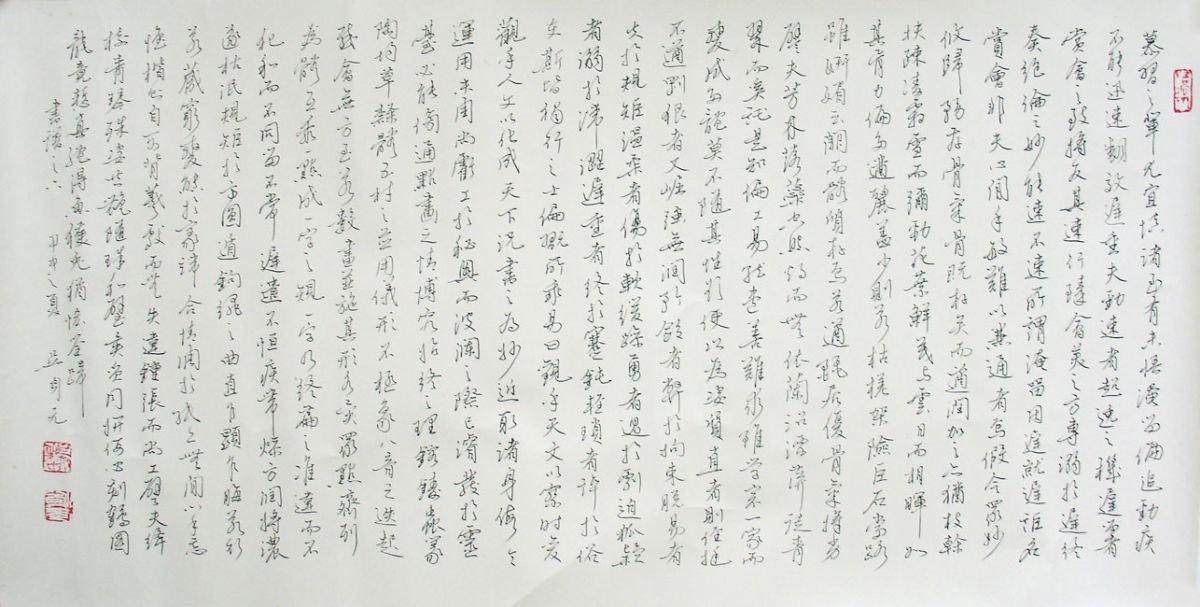 慕習之輩尤宜慎諸至有未悟淹留偏追勁疾
不能迅速翻效遲重夫勁速者超逸之機遲留者
賞會之致將反其速行臻會美之方專溺於遲終
爽絕倫之妙能速不速所謂淹留因遲就遲詎名
賞會非夫心閑手敏難以兼通者焉假令眾妙
攸歸務存骨氣骨既存矣而遒潤加之亦猶枝幹
扶疎凌霜雪而彌勁花葉鮮茂與雲日而相暉如
其骨力偏多遒麗蓋少則若枯槎架險巨石當路
雖妍媚云闕而體質存焉若遒麗居優骨氣將劣
譬夫芳林落蘂空照灼而無依蘭沼漂蓱徒青
翠而奚託是知偏工易就盡善難求雖學宗一家而
變成多體莫不隨其性欲便以為姿質直者則徑挺
不遒剛很者又崛強無潤矜斂者弊於拘束脫易者
失於規矩溫柔者傷於軟緩躁勇者過於剽迫狐疑
者溺於滯澀遲重者終於蹇鈍輕瑣者染於俗
吏斯皆獨行之士偏翫所乖易曰觀乎天文以察時變
觀乎人文以化成天下況書之為妙近取諸身假令
運用未周尚虧工於秘奧而波瀾之際已濬發於靈
臺必能傍通點畫之情博究始終之理鎔鑄蟲篆
陶均草隸體五材之並用儀形不極象八音之迭起
感會無方至若數畫並施其形各異眾點齊列
為體互乖一點成一字之規一字乃終篇之準違而不
犯和而不同留不常遲遣不恆疾帶燥方潤將濃
遂枯泯規矩於方圓遁鉤繩之曲直乍顯乍晦若行
若藏窮變態於毫端合情調於紙上無間心手忘
懷楷則自可背羲獻而無失違鍾張而尚工譬夫絳
樹青琴殊姿共艷隨珠和璧異質同妍何必刻鶴圖
龍竟慚真體得魚獲兔猶恡筌蹄
書譜之六 甲申之夏